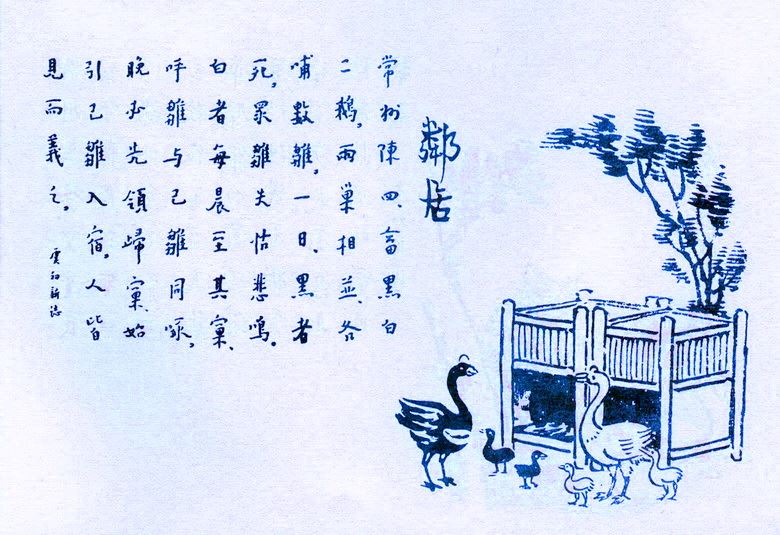 鄰居
常州陳四、畜黑白
二鵝，兩巢相並、各
哺數雛。一日、黑者
死，眾雛失怙悲鳴。
白者每晨至其窠、
呼雛与己雛同啄，
晚必先領歸窠、始
引己雛入宿。人皆
見而義之。
虞初新誌